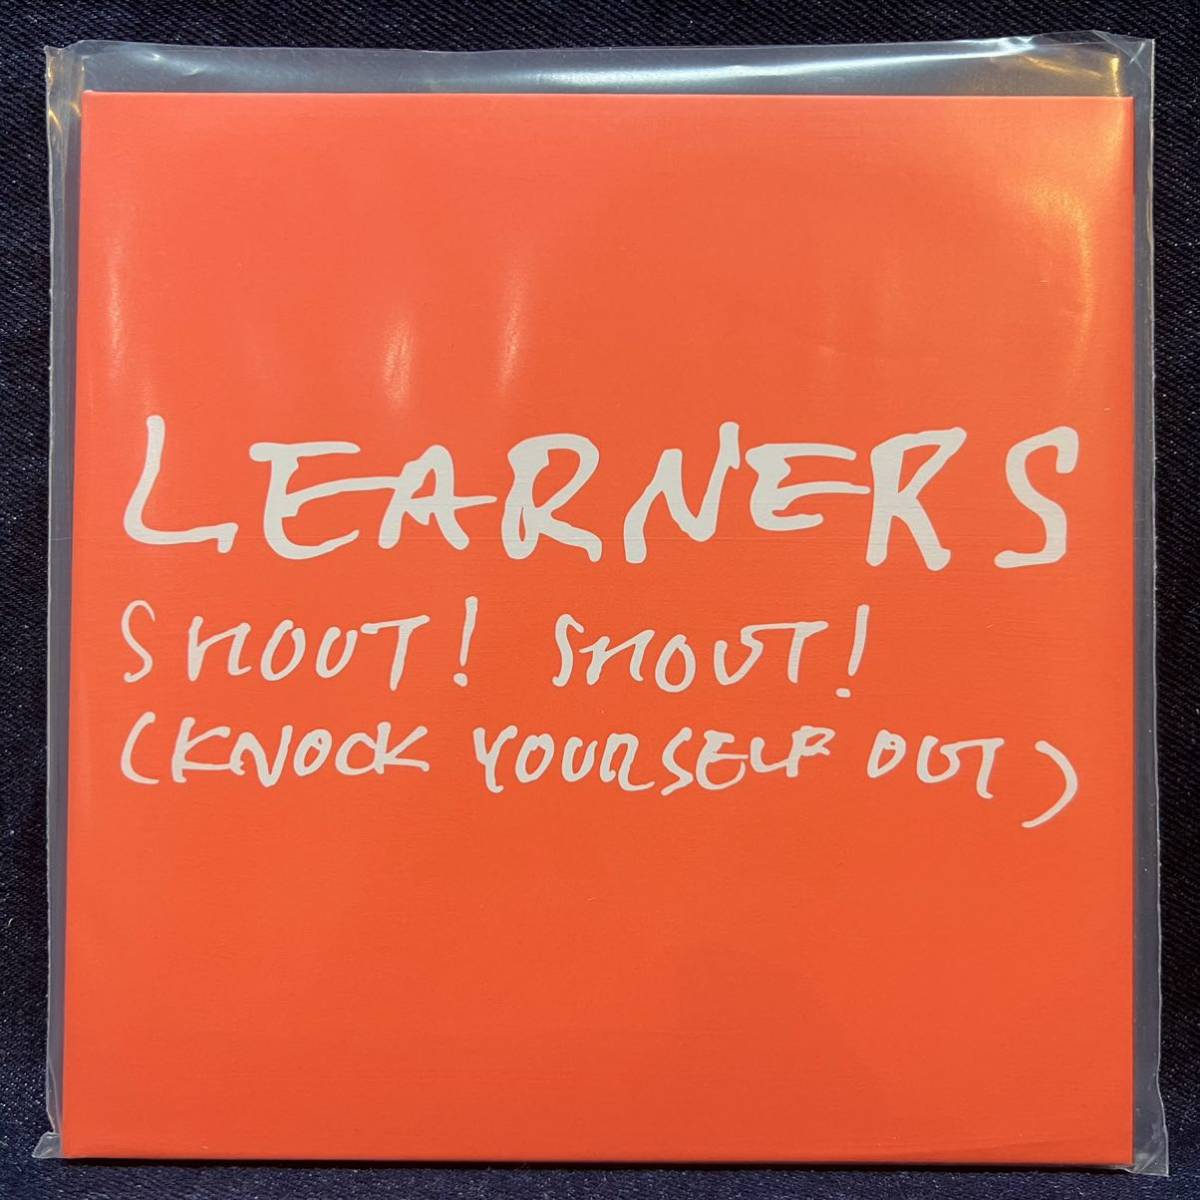 LEARNERS
SHOUT! SHOUT!
(KNOCK YOURSELF OUT)